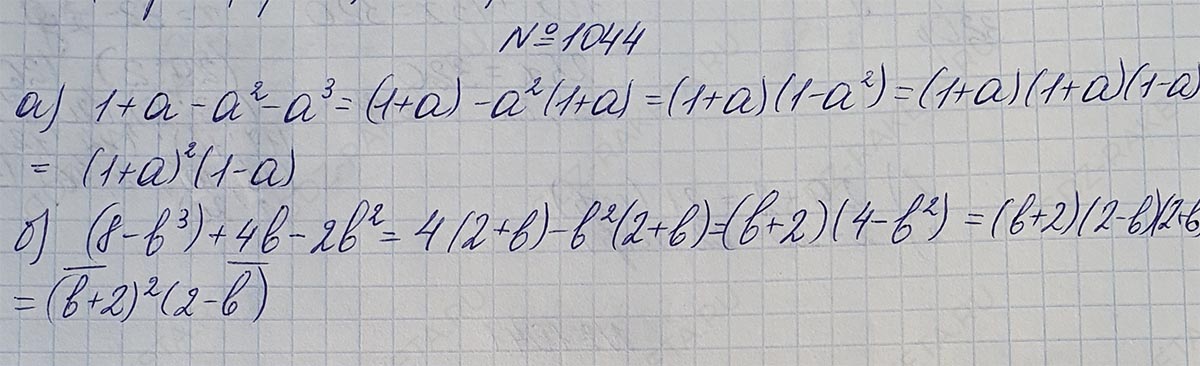 №1044
а) 1+a-a²-a³=(1+a)-a²(1+a)=(1+a)(1-a²)=(1+a)(1+a)(1-a)
=(1+a)²(1-a)
б) (8-b³)+4b-2b²=4(2+b)-b²(2+b)=(b+2)(4-b²)=(b+2)(2-b)(2+b
=(b+2)²(2-b)